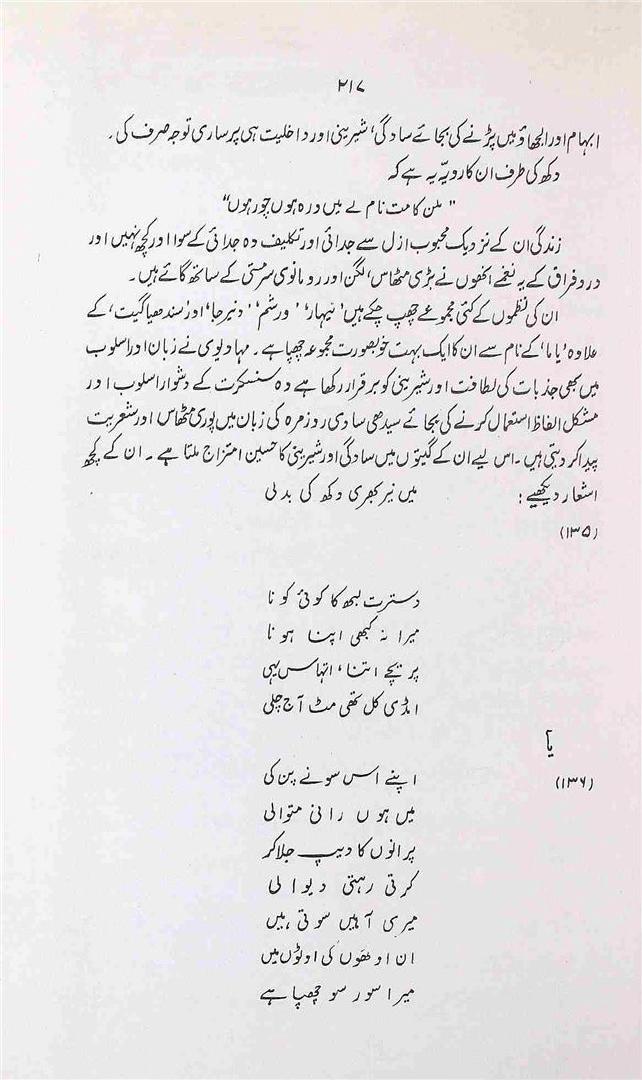 ۲۱۷
ابہام اور الجھاؤ میں پڑنے کی بجائے سادگی، شیرینی اور داخلیت ہی پر ساری توجہ صرف کی۔
دکھ کی طرف ان کا رویہ یہ ہے کہ
"ملن کا مت نام لے میں درہ ہوں چور ہوں"
زندگی ان کے نزدیک محبوب ازل سے جدائی اور تکلیف دہ جدائی کے سوا اور کچھ نہیں اور
درد فراق کے یہ نغمے انھوں نے بڑی مٹھاس، لگن اور رومانوی سرمستی کے ساتھ گائے ہیں۔
ان کی نظموں کے کئی مجموعے چھپ چکے ہیں 'نیہار' 'ورشم' 'دنیرجا' اور 'سندھیا گیت' کے
علاوہ 'یاما' کے نام سے ان کا ایک بہت خوبصورت مجموعہ چھپا ہے۔ مہادیوی نے زبان اور اسلوب
میں بھی جذبات کی لطافت اور شیرینی کو برقرار رکھا ہے وہ سنسکرت کے دشوار اسلوب اور
مشکل الفاظ استعمال کرنے کی بجائے سیدھی سادی روزمرہ کی زبان میں پوری مٹھاس اور شعریت
پیدا کر دیتی ہیں۔ اس لیے ان کے گیتوں میں سادگی اور شیرینی کا حسین امتزاج ملتا ہے۔ ان کے کچھ
اشعار دیکھیے: میں نیر بھری دکھ کی بدلی
(۱۳۵)
دسترت نبھ کا کوئی کونا
میرا نہ کبھی اپنا ہونا
پریچے اتنا، اتہاس یہی
امڈی کل تھی مٹ آج چلی
یا
(۱۳۶) اپنے اس سونے پن کی
میں ہوں رانی متوالی
پرانوں کا دیپ جلا کر
کرتی رہتی دیوالی
میری آہیں سوتی ہیں
ان اوٹھوں کی اوٹوں میں
میرا سورسو چھپا ہے